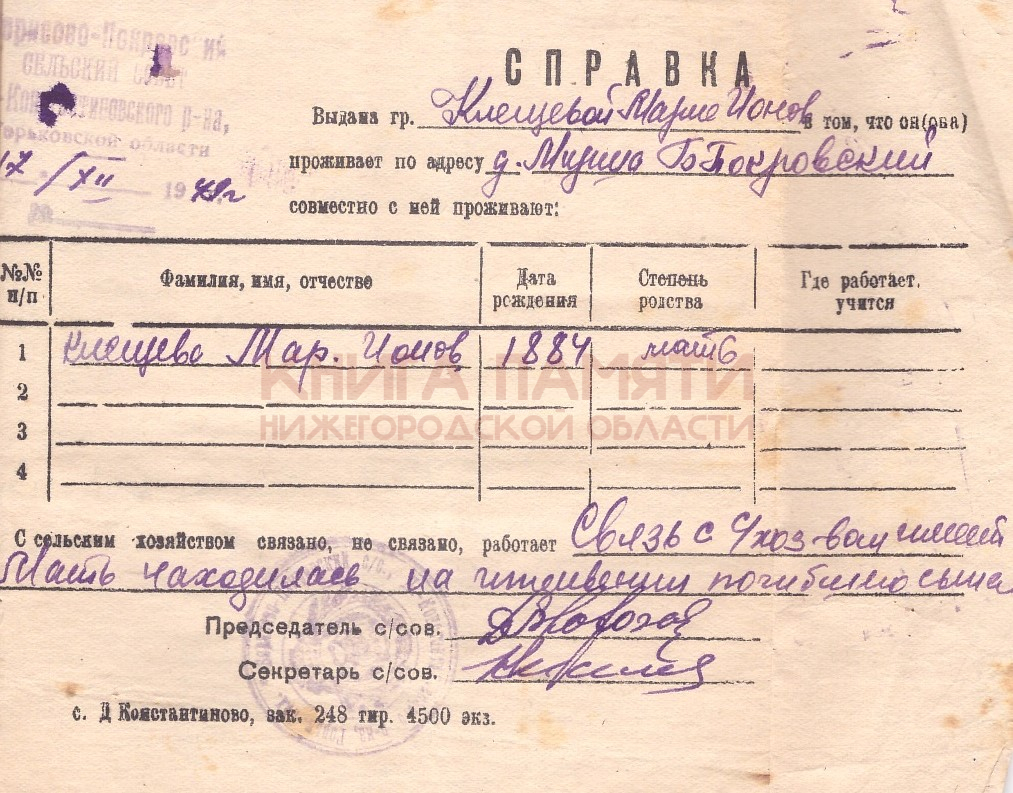 Борисово-Покровский
СЕЛЬСКИЙ СОВЕТ
Константиновского р-на,
Горьковской области
17/XII 1949г
СПРАВКА
Выдана гр. Клещевой Марие Ионов в том, что он(она)
проживает по адресу д. Б-Покровский
совместно с ней проживают:
№№ п/п Фамилия, имя, отчестве Дата рождения Степень родства Где работает, учится
1 Клещева Мар. Ионов 1884 мать
2
3
4
КНИГА ПАМЯТИ
НИЖЕГОРОДСКОЙ ОБЛАСТИ
С сельским хозяйством связано, не связано, работает Связь с с/хоз-вом имеет
Мать находилась на иждивении погибшего сына
Председатель с/сов.
Секретарь с/сов.
с. Д Константиново, зак. 248 тир. 4500 экз.